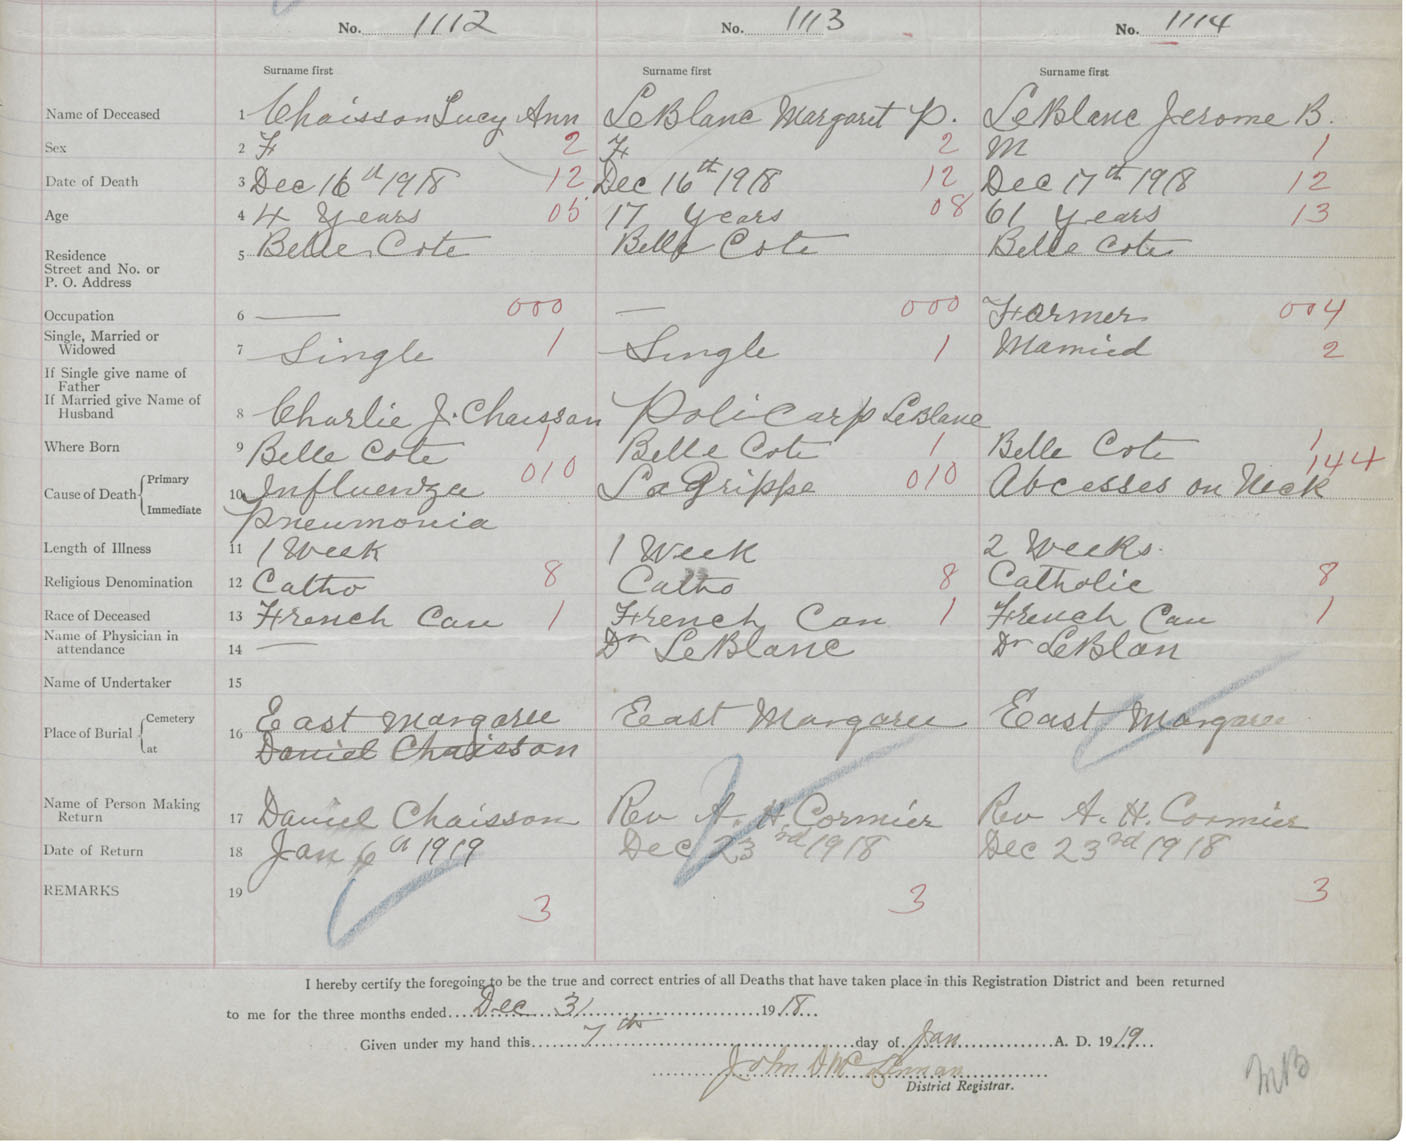 No. 1112 No. 1113 No. 1114
Surname first Surname first Surname first
Name of Deceased 1 Chaisson Lucy Ann LeBlanc Margaret P. LeBlanc Jerome B.
Sex 2 F 2 F 2 M 1
Date of Death 3 Dec 16th 1918 12 Dec 16th 1918 12 Dec 17th 1918 12
Age 4 4 Years 05 17 Years 08 61 Years 13
Residence 5 Belle Cote Belle Cote Belle Cote
Street and No. or
P. O. Address
Occupation 6 — 000 — 000 Farmer 004
Single, Married or
Widowed 7 Single 1 Single 1 Married 2
If Single give name of
Father
If Married give Name of
Husband 8 Charlie J. Chaisson Policarp LeBlanc
Where Born 9 Belle Cote 1 Belle Cote 1 Belle Cote 1
Cause of Death { Primary 10 Influenza 010 LaGrippe 010 Abcesses on Neck 144
Immediate Pneumonia
Length of Illness 11 1 Week 1 Week 2 Weeks.
Religious Denomination 12 Catho 8 Catho 8 Catholic 8
Race of Deceased 13 French Can 1 French Can 1 French Can 1
Name of Physician in
attendance 14 — Dr LeBlanc Dr LeBlan
Name of Undertaker 15
Place of Burial { Cemetery 16 East Margaree East Margaree East Margaree
at Daniel Chaisson
Name of Person Making
Return 17 Daniel Chaisson Rev A. H. Cormier Rev A. H. Cormier
Date of Return 18 Jan 6th 1919 Dec 23rd 1918 Dec 23rd 1918
REMARKS 19 3 3 3
I hereby certify the foregoing to be the true and correct entries of all Deaths that have taken place in this Registration District and been returned
to me for the three months ended Dec 31 1918
Given under my hand this 7th day of Jan A. D. 1919
John D McLennan
District Registrar.
MB